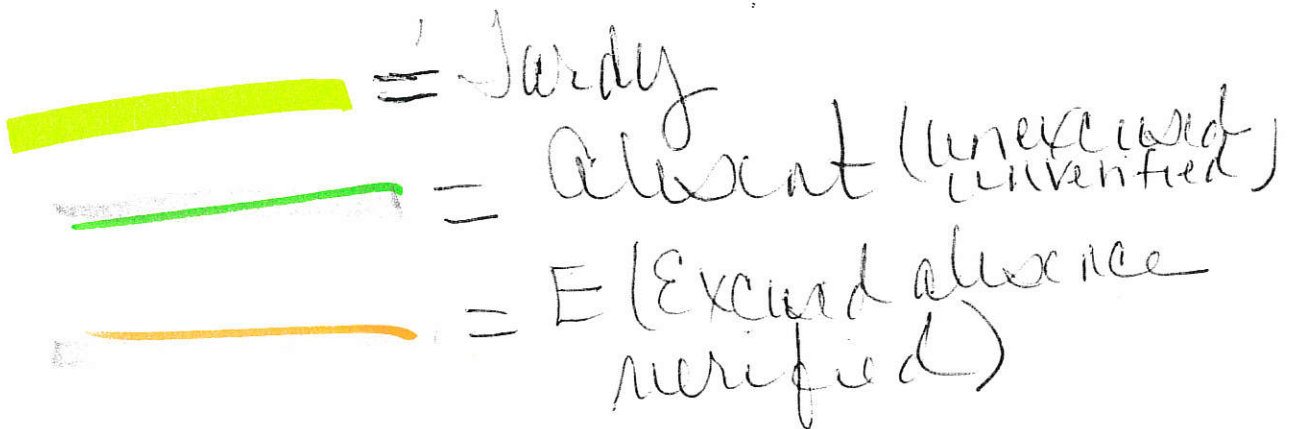 = Tardy
= Absent (unexcused
unverified)
= E (Excused absence
verified)